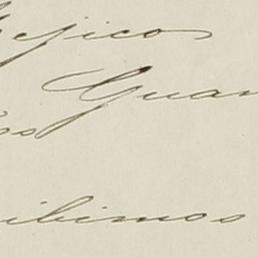 ejicos
Guan
os
ibimos